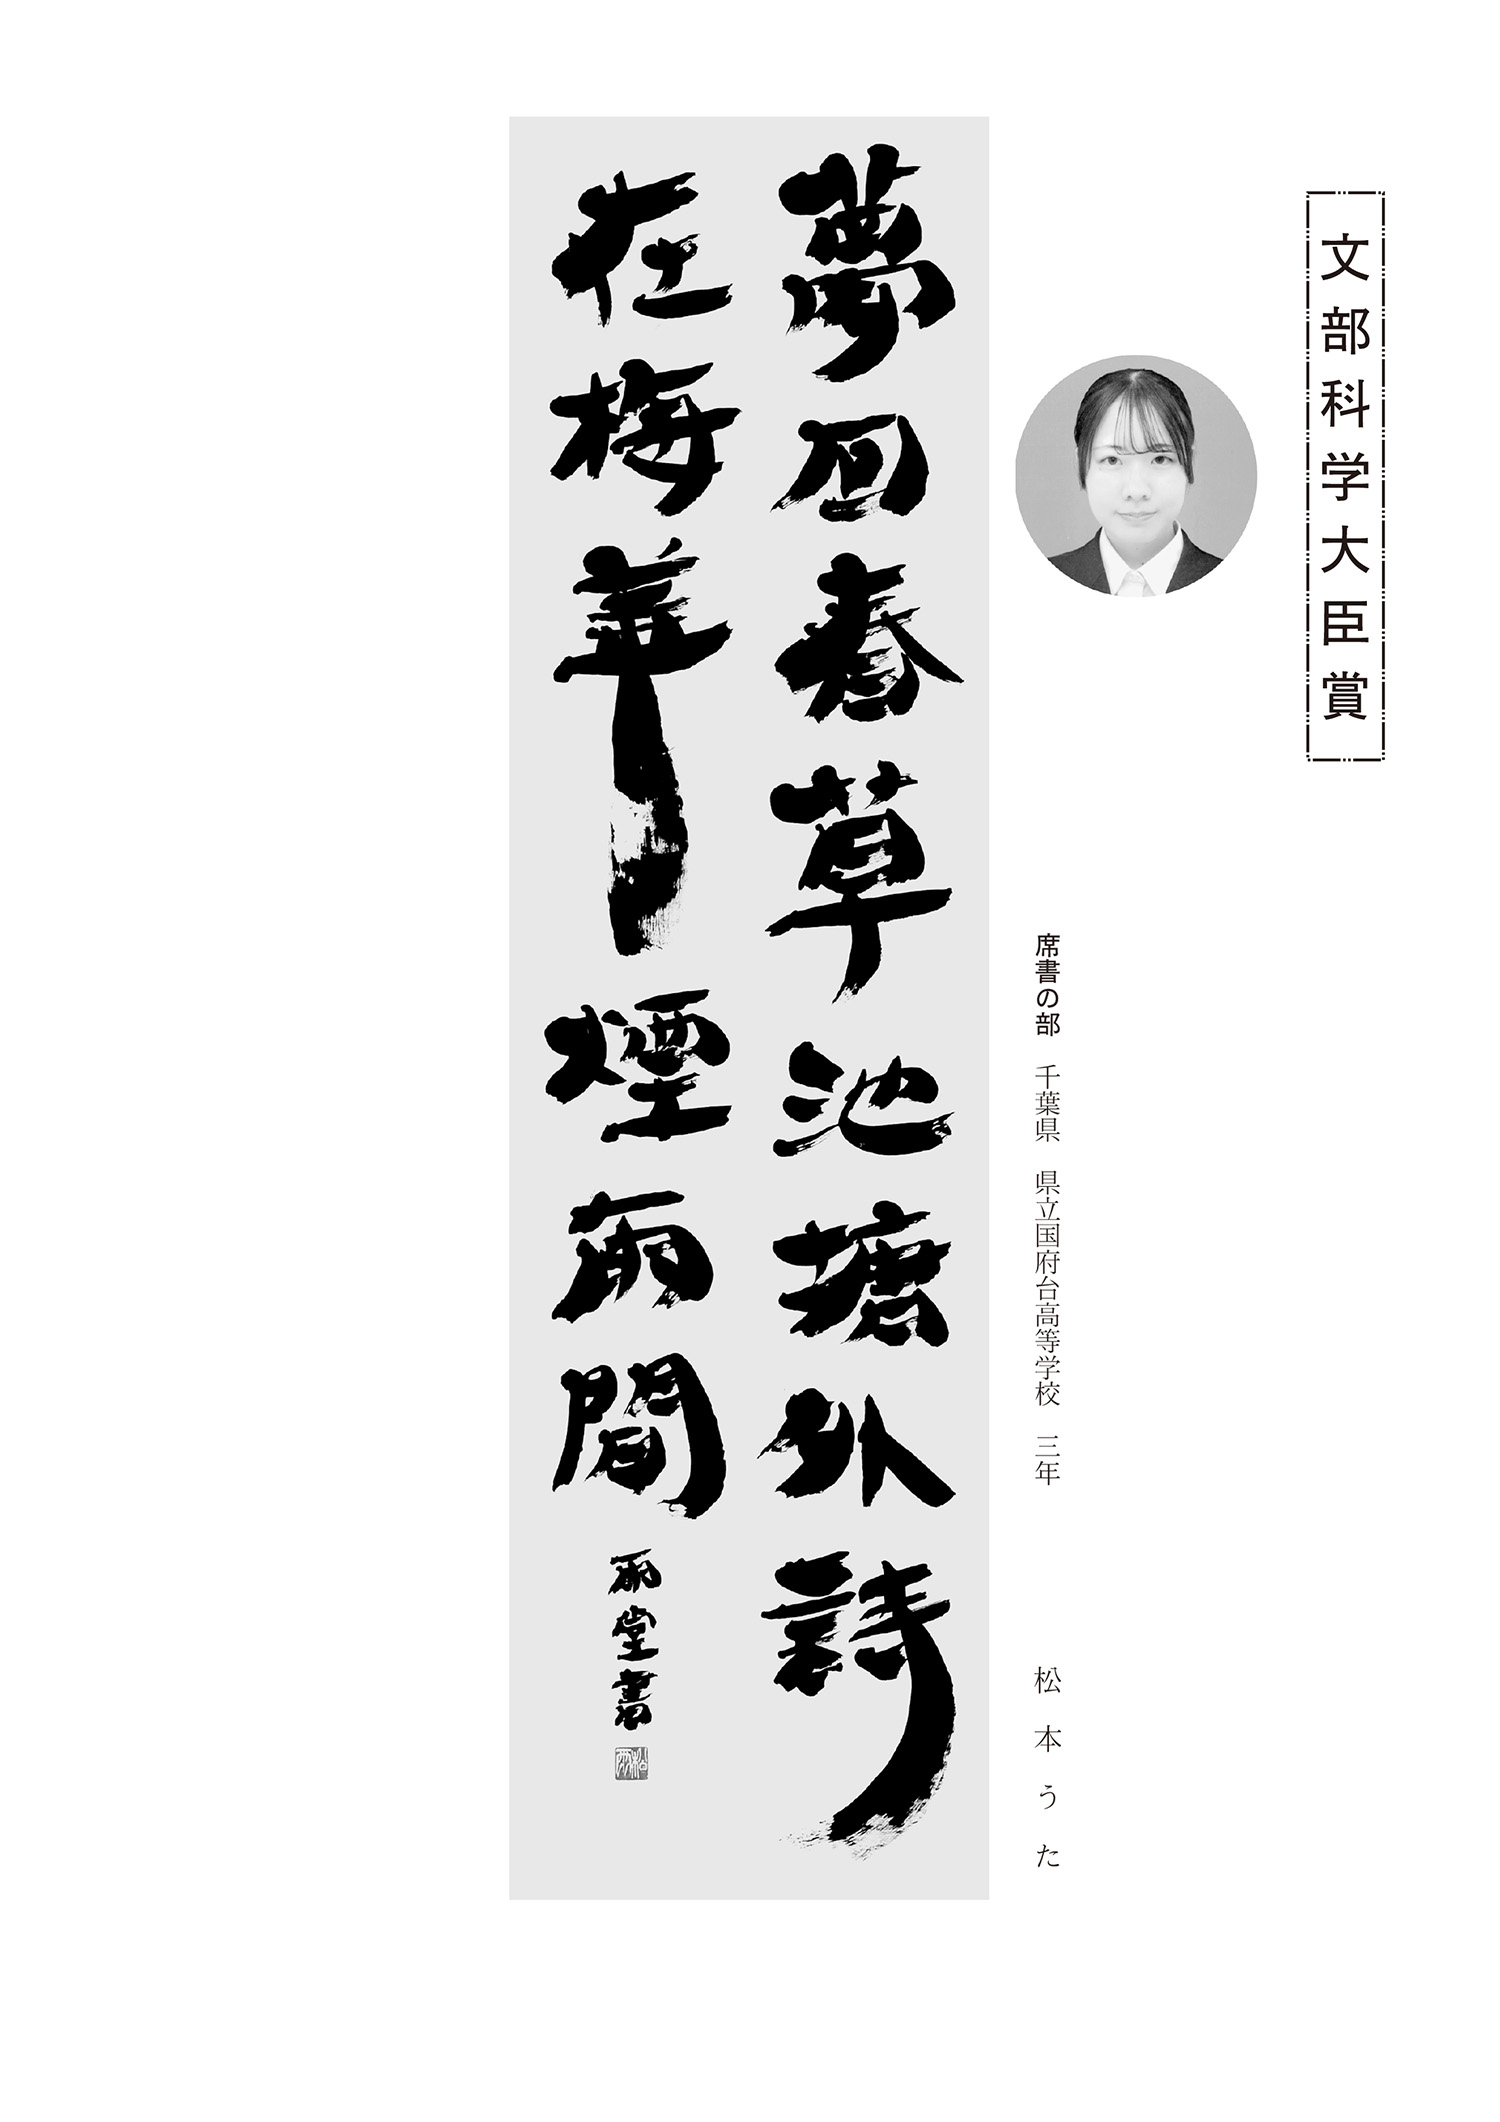 文部科学大臣賞
席書の部 千葉県 県立国府台高等学校 三年 松本うた
夢回春草池塘外詩
在梅華煙雨間
雨堂書